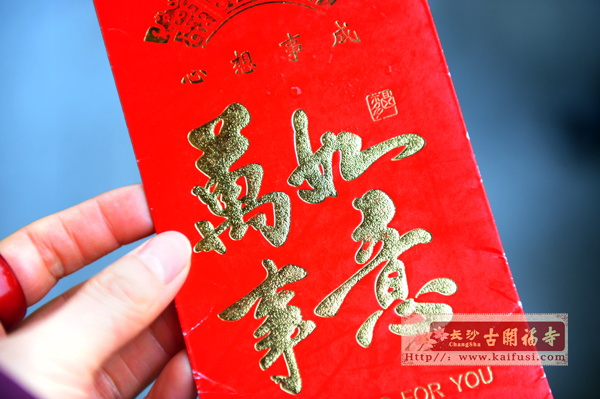 心想事成
萬事
如意
FOR YOU
长沙 古開福寺
ChangSha
Http://: www.kaifusi.com